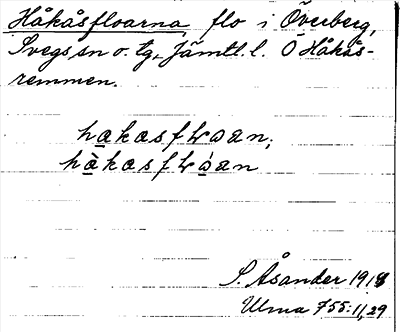 Håkåsfloarna, flo i Överberg,
Svegs sn o. tg, Jämtl. l. Ö Håkås-
remmen.
hakasfLoan;
hàkasfLòan
S. Åsander 1918
Ulma 755:11,29